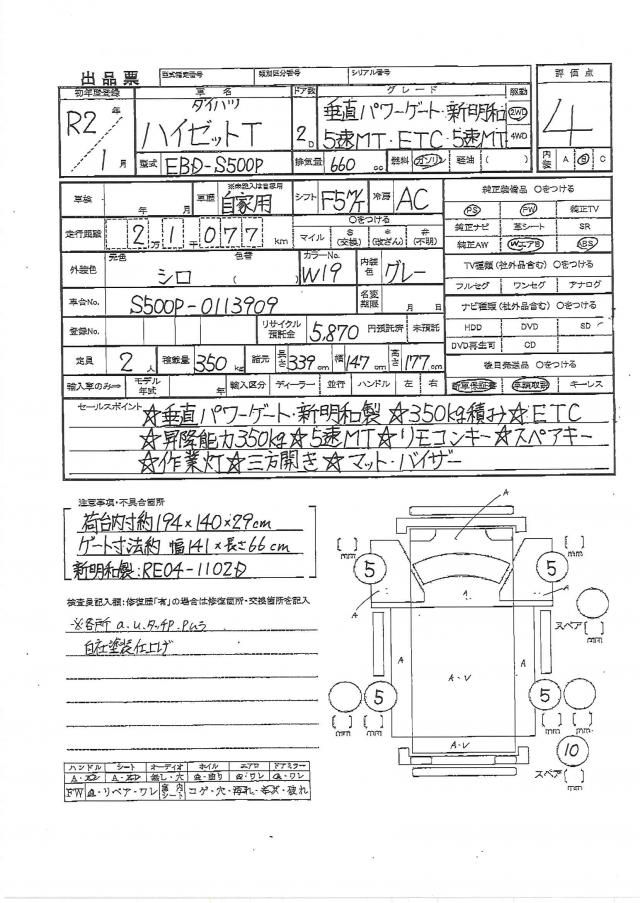 出品票 型式指定番号 類別区分番号 シリアル番号
初年度登録 車名 ドア数 グレード 駆動 評価点
R2年 ダイハツ ハイゼットT 2D 垂直パワーゲート・新明和 2WD 4
1月 5速MT・ETC・5速MT 4WD
型式 EBD-S500P 排気量 660cc 燃料 ガソリン 軽油 ( ) 内装 A B C
車検 年 月 車歴 ※未記入は自家用 自家用 シフト F5M/T 冷房 AC 純正装備品 〇をつける
PS PW 純正TV
走行距離 2万1千077km 〇をつける マイル $(交換) *(改ざん) #(不明) 純正ナビ 革シート SR
純正AW WエアB ABS
外装色 元色 シロ 色替 ( ) カラーNo. W19 内装色 グレー TV種類(社外品含む) 〇をつける
フルセグ ワンセグ アナログ
車台No. S500P-0113909 名変期限 月 日 ナビ種類(社外品含む) 〇をつける
登録No. リサイクル預託金 5,870 円預託済 未預託 HDD DVD SD
DVD再生可 CD
定員 2人 積載量 350kg 諸元 長さ 339cm 幅 147cm 高さ 177cm 後日発送品 〇をつける
輸入車のみ⇒ モデル年式 年 輸入区分 ディーラー 並行 ハンドル 左 右 新車保証書 車輌取説 キーレス
セールスポイント ☆垂直パワーゲート・新明和製 ☆350kg積み☆ETC
☆昇降能力350kg☆5速MT☆リモコンキー☆スペアキー
☆作業灯☆三方開き☆マット・バイザー
注意事項・不具合箇所
荷台内寸約194×140×29cm
ゲート寸法約 幅141×長さ66cm
新明和製:RE04-1102D
検査員記入欄:修復歴「有」の場合は修復箇所・交換箇所を記入
※各所 a.u.タッチP.
自社塗装仕上げ
A
[ ] mm [ ] mm
5 5
A A
スペア [ ] mm
A A
A・V
5 5
[ ] mm [ ] mm [ ] mm [ ] mm
A・V
10
スペア [ ] mm
ハンドル シート オーディオ ホイル エアロ ドアミラー
無し・穴
FW リペア・ワレ 室内シート コゲ・穴・汚れ・破れ